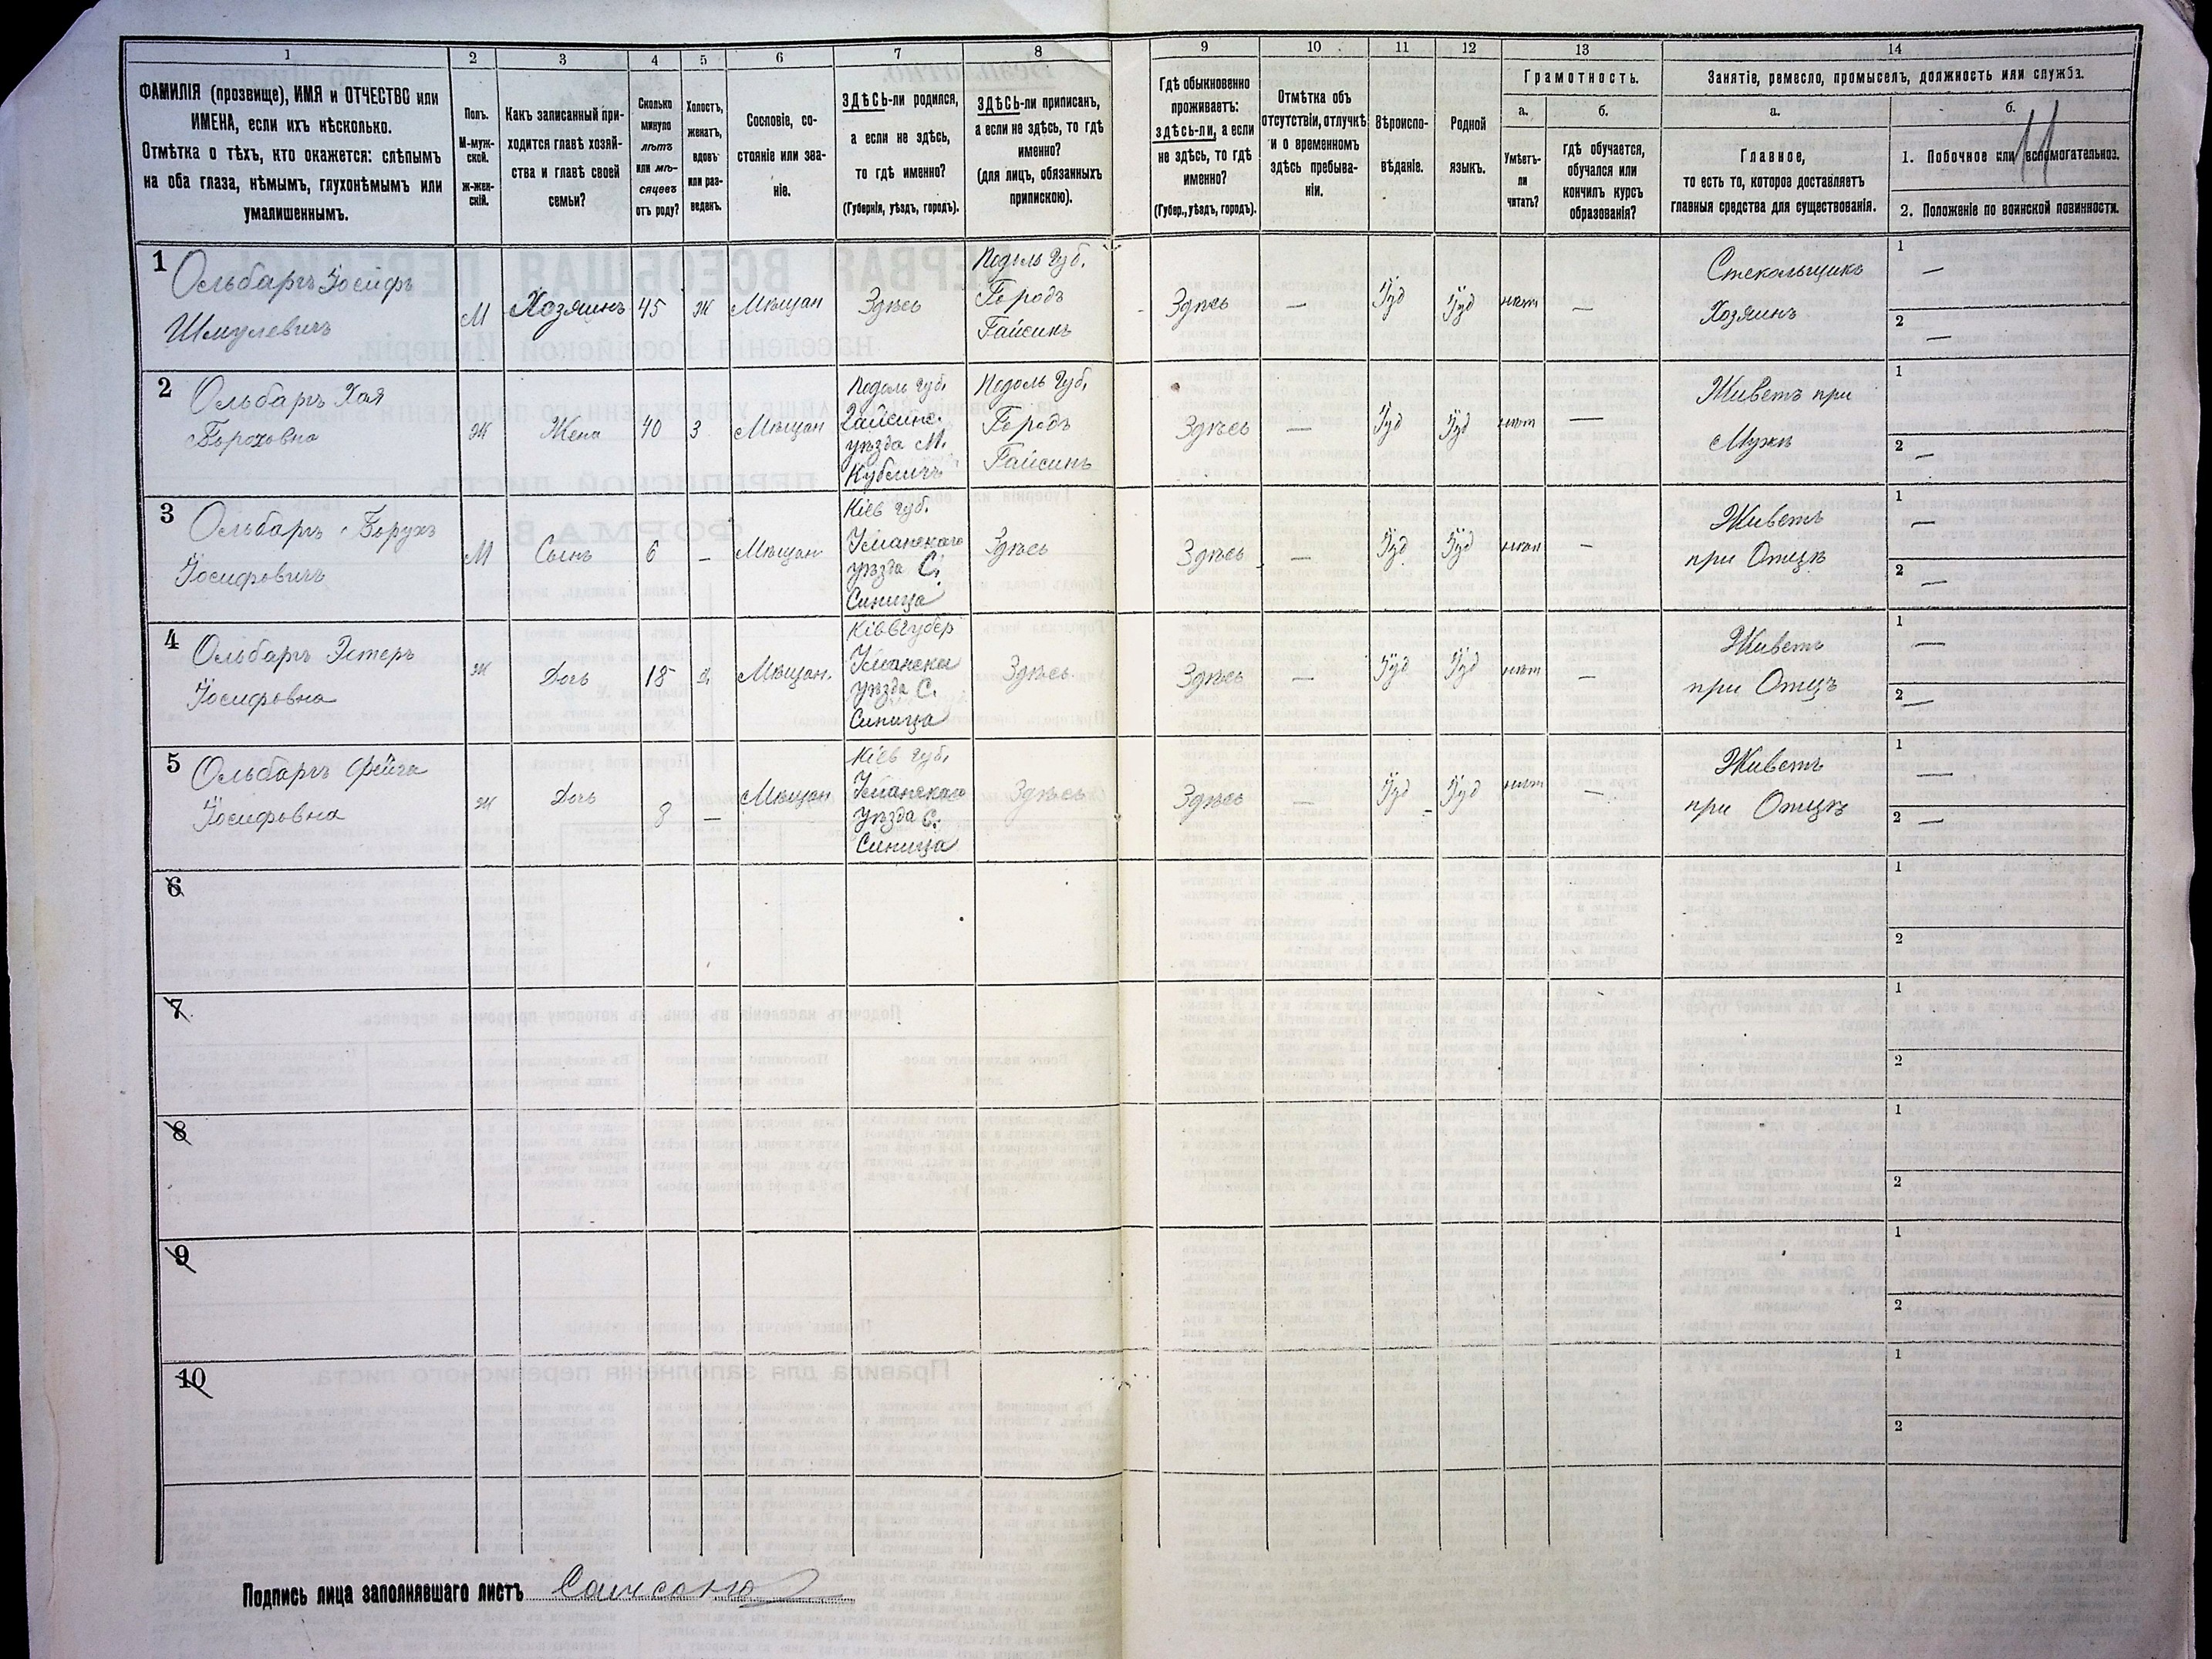 1
2
3
4
5
6
7
8
9
10
11
12
13
14
ФАМИЛІЯ (прозвище), ИМЯ и ОТЧЕСТВО или
ИМЕНА, если ихъ нѣсколько.
Отмѣтка о тѣхъ, кто окажется: слѣпымъ
на оба глаза, нѣмымъ, глухонѣмымъ или
умалишеннымъ.
Полъ.
М-муж-
ской.
ж-жен-
скій.
Какъ записанный при-
ходится главѣ хозяй-
ства и главѣ своей
семьи?
Сколько
минуло
лѣтъ
или мѣ-
сяцевъ
отъ роду?
Холостъ,
женатъ,
вдовъ
или раз-
веденъ.
Сословіе, со-
стояніе или зва-
ніе.
ЗДѢСЬ-ли родился,
а если не здѣсь,
то гдѣ именно?
(Губернія, уѣздъ, городъ).
ЗДѢСЬ-ли приписанъ,
а если не здѣсь, то гдѣ
именно?
(для лицъ, обязанныхъ
припискою).
Гдѣ обыкновенно
проживаетъ:
здѣсь-ли, а если
не здѣсь, то гдѣ
именно?
(Губер., уѣздъ, городъ).
Отмѣтка объ
отсутствіи, отлучкѣ
и о временномъ
здѣсь пребыва-
ніи.
Вѣроиспо-
вѣданіе.
Родной
языкъ.
Грамотность.
а.
б.
Умѣетъ-
ли
читать?
гдѣ обучается,
обучался или
кончилъ курсъ
образованія?
Занятіе, ремесло, промыселъ, должность или служба.
а.
б.
Главное,
то есть то, которое доставляетъ
главныя средства для существованія.
1. Побочное или вспомогательное.
2. Положеніе по воинской повинности.
11
1
Ольбаргъ Іосифъ
Шмулевичъ
М
Хозяинъ
45
Ж
Мѣщан
Здѣсь
Подоль Губ.
Городъ
Гайсинъ
Здѣсь
—
Іуд
Іуд
нѣт
—
Стекольщикъ
Хозяинъ
1
—
2
—
2
Ольбаргъ Хая
Бороховна
Ж
Жена
40
З
Мѣщан
Подоль Губ.
Гайсинс.
уѣзда М.
Кубличъ
Подоль Губ.
Городъ
Гайсинъ
Здѣсь
—
Іуд
Іуд
нѣт
—
Живетъ при
Мужѣ
1
2
—
3
Ольбаргъ Борухъ
Іосифовичъ
М
Сынъ
6
—
Мѣщан
Кіев Губ.
Уманскаго
уѣзда С.
Синица
Здѣсь
Здѣсь
—
Іуд
Іуд
нѣт
—
Живетъ
при Отцѣ
1
—
2
—
4
Ольбаргъ Эстеръ
Іосифовна
Ж
Дочь
18
д.
Мѣщан.
Кіев Губер
Уманска
уѣзда С.
Синица
Здѣсь
Здѣсь
—
Іуд
Іуд
нѣт
—
Живетъ
при Отцъ
1
—
2
—
5
Ольбаргъ Фейга
Іосифовна
Ж
Дочь
8
—
Мѣщан
Кіев Губ.
Уманскаго
уѣзда С.
Синица
Здѣсь
Здѣсь
—
Іуд
Іуд
нѣт
—
Живетъ
при Отцѣ
1
—
2
—
6
1
2
7
1
2
8
1
2
9
1
2
10
1
2
Подпись лица заполнявшаго листъ